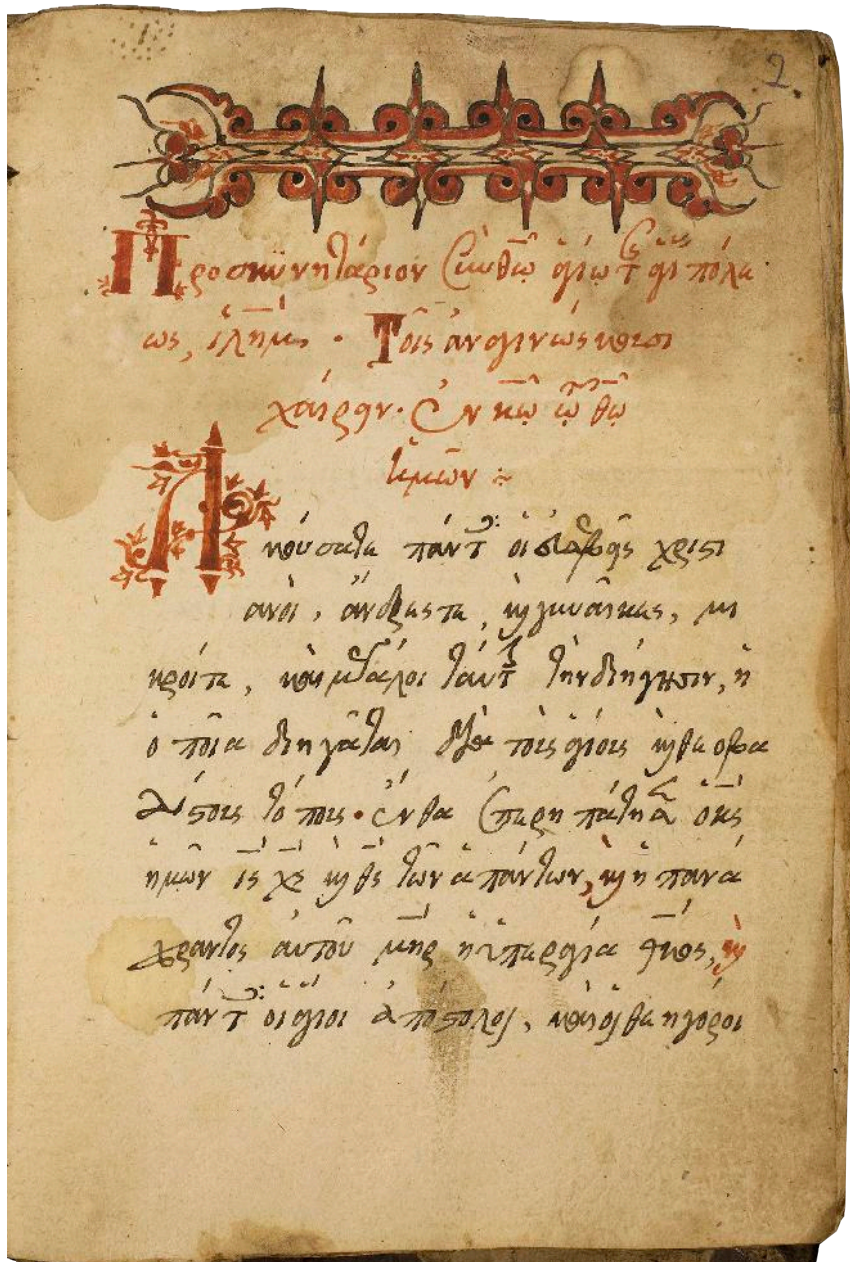 2
Προσκυνητάριον σὺν θῶ ἁγίω τῆς ἁγί πόλε
ως, ἱλημ. Τοῖς ἀναγινώσκουσι
χαίρειν. Ἐν κῶ τῶ θῶ
ἡμῶν
Ἀκούσατε πάντες οἱ εὐλαβεῖς χριστι
ανοί, ἄνδρες τε, καὶ γυναῖκες, μι
κροί τε, καὶ μεγάλοι ταύτην τὴν διήγησιν, ἡ
ὁποῖα διηγᾶται διὰ τοὺς ἁγίους καὶ θεοβα
δίστους τόπους. ἔνθα ἐπεριπάτησεν ὁ κς
ἡμῶν ις χς καὶ θς τῶν ἁπάντων, καὶ ἡ πανά
χραντος αὐτοῦ μηρ ἡ ὑπεραγία θκος, καὶ
πάντες οἱ ἅγιοι ἀπόστολοι, καὶ οἱ θεηγόροι